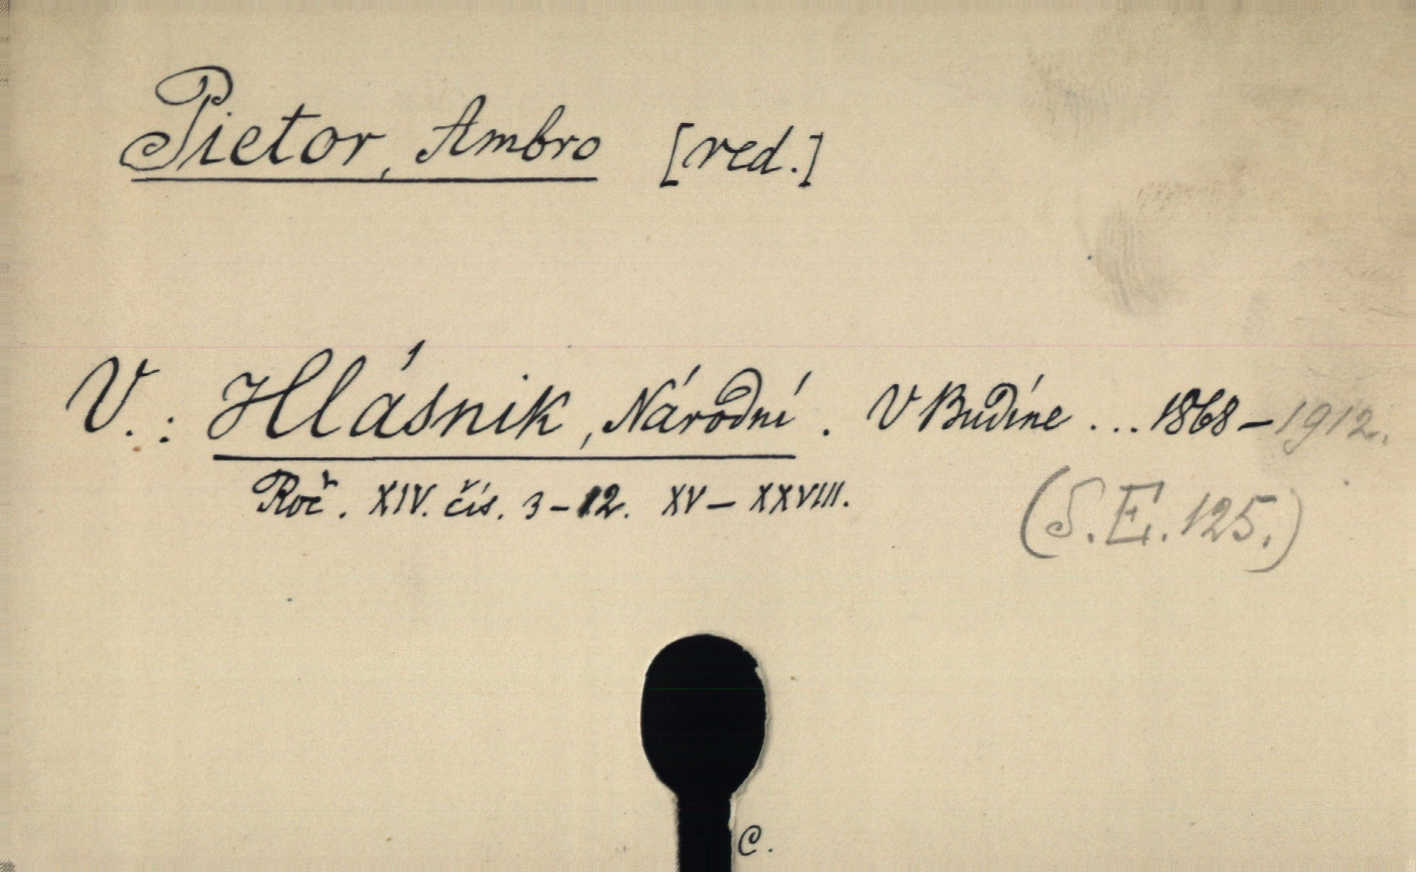 Pietor, Ambro [red.]
V.: Hlásnik, Národní. V Budíne ... 1868 – 1912.
Roč. XIV. čís. 3 – 12. XV – XXVIII.
(S.E. 125.)
C.